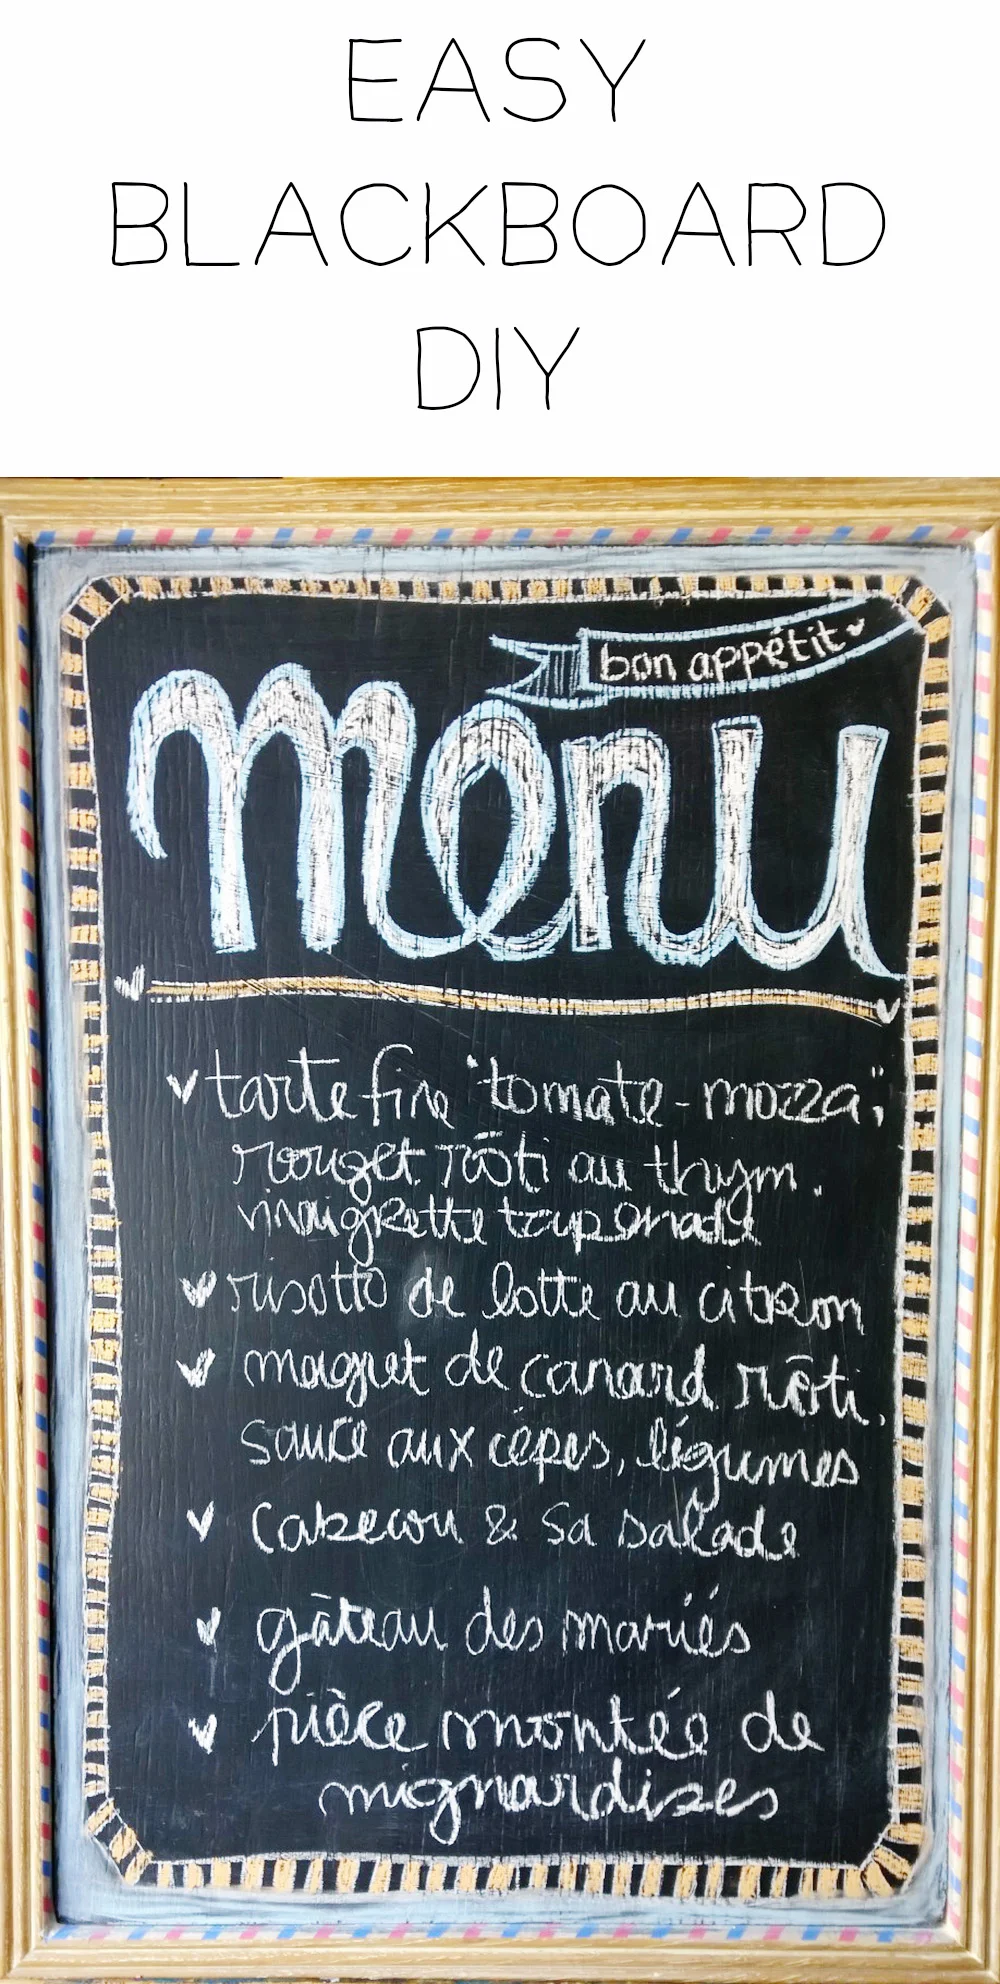 EASY
BLACKBOARD
DIY
bon appétit
menu
tarte fine "tomate - mozza",
rouget rôti au thym.
vinaigrette tapenade
risotto de lotte au citron
magret de canard rôti.
sauce aux cèpes, légumes
Cabecou & sa salade
gâteau des mariés
pièce montée de
mignardises